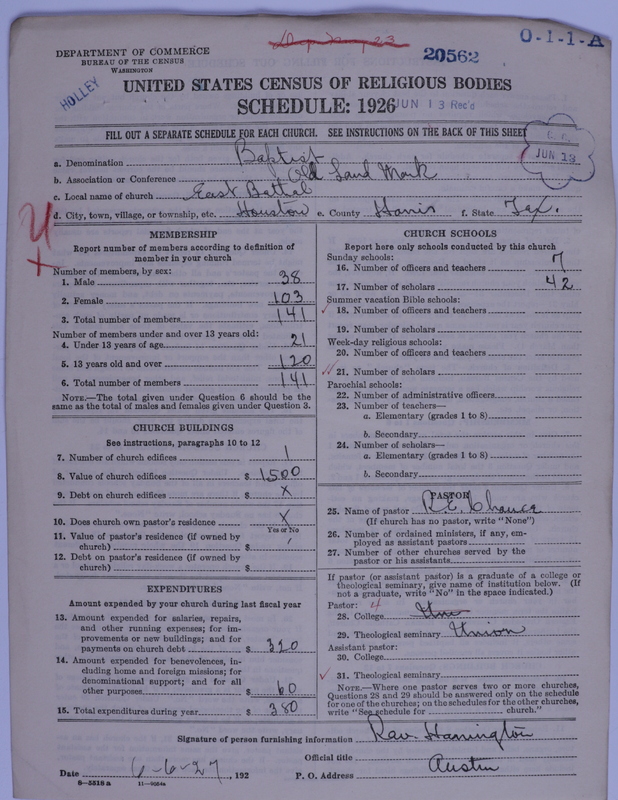 20562
O-1-1-A
DEPARTMENT OF COMMERCE
BUREAU OF THE CENSUS
WASHINGTON
HOLLEY
UNITED STATES CENSUS OF RELIGIOUS BODIES
SCHEDULE: 1926
JUN 13 Rec'd
FILL OUT A SEPARATE SCHEDULE FOR EACH CHURCH. SEE INSTRUCTIONS ON THE BACK OF THIS SHEET
JUN 13
a. Denomination Baptist
b. Association or Conference Old Land Mark
c. Local name of church East Bettal
d. City, town, village, or township, etc. Houston e. County Harris f. State Tex.
MEMBERSHIP
Report number of members according to definition of member in your church
Number of members, by sex:
1. Male 38
2. Female 103
3. Total number of members 141
Number of members under and over 13 years old:
4. Under 13 years of age 21
5. 13 years old and over 120
6. Total number of members 141
NOTE.—The total given under Question 6 should be
same as the total of males and females given under Question 3.
CHURCH BUILDINGS
See instructions, paragraphs 10 to 12
7. Number of church edifices 1
8. Value of church edifices $ 1500
9. Debt on church edifices $ X
10. Does church own pastor's residence X
Yes or No
11. Value of pastor's residence (if owned by
church) $
12. Debt on pastor's residence (if owned by
church) $
EXPENDITURES
Amount expended by your church during last fiscal year
13. Amount expended for salaries, repairs,
and other running expenses; for im-
provements or new buildings; and for
payments on church debt $ 320
14. Amount expended for benevolences, in-
cluding home and foreign missions; for
denominational support; and for all
other purposes $ 60
15. Total expenditures during year $ 380
CHURCH SCHOOLS
Report here only schools conducted by this church
Sunday schools:
16. Number of officers and teachers 7
17. Number of scholars 42
Summer vacation Bible schools:
18. Number of officers and teachers
19. Number of scholars
Week-day religious schools:
20. Number of officers and teachers
21. Number of scholars
Parochial schools:
22. Number of administrative officers
23. Number of teachers—
a. Elementary (grades 1 to 8)
b. Secondary
24. Number of scholars—
a. Elementary (grades 1 to 8)
b. Secondary
PASTOR
25. Name of pastor R.E. Chance
(If church has no pastor, write "None")
26. Number of ordained ministers, if any, em-
ployed as assistant pastors
27. Number of other churches served by the
pastor or his assistants
If pastor (or assistant pastor) is a graduate of a college or
theological seminary, give name of institution below. (If
not a graduate, write "No" in the space indicated.)
Pastor:
28. College
29. Theological seminary Union
Assistant pastor:
30. College
31. Theological seminary
NOTE.—Where one pastor serves two or more churches,
Questions 28 and 29 should be answered only on the schedule
for one of the churches; on the schedules for the other churches,
write "See schedule for church."
Signature of person furnishing information Rev. Harrington
Official title
Date 6-6-27, 192 P. O. Address Austin
8-5518 a 11-9264a